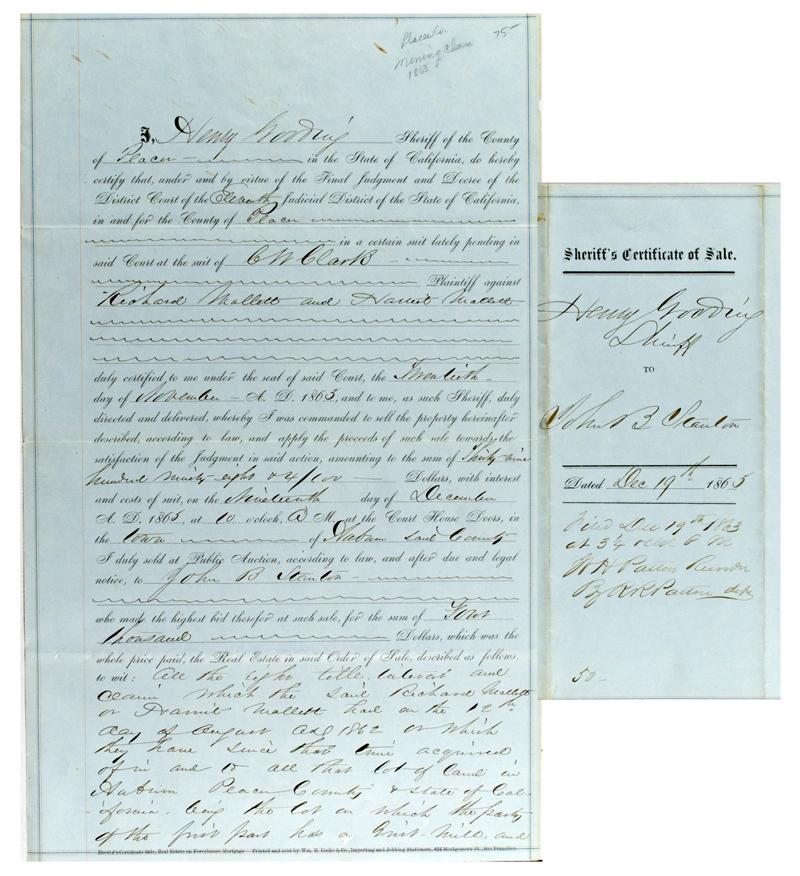 Placer Co.
Mining Claim
1863
75-
I, Henry Gooding Sheriff of the County
of Placer in the State of California, do hereby
certify that, under and by virtue of the Final Judgment and Decree of the
District Court of the Eleventh Judicial District of the State of California,
in and for the County of Placer
in a certain suit lately pending in
said Court at the suit of C W Clark
Plaintiff against
Richard Mallett and Harriet Mallett
duly certified, to me under the seal of said Court, the Twentieth
day of November A. D. 1863, and to me, as such Sheriff, duly
directed and delivered, whereby I was commanded to sell the property hereinafter
described, according to law, and apply the proceeds of such sale towards the
satisfaction of the Judgment in said action, amounting to the sum of Thirty nine
hundred ninety-eight & 4/100 Dollars, with interest
and costs of suit, on the Nineteenth day of December
A. D. 1863, at 10 o'clock, A M. at the Court House Doors, in
the town of Auburn said County
I duly sold at Public Auction, according to law, and after due and legal
notice, to John B Stanton
who made the highest bid therefor at such sale, for the sum of Four
thousand Dollars, which was the
whole price paid, the Real Estate in said Order of Sale, described as follows,
to wit: All the right title, interest and
claim which the said Richard Mallett
or Harriet Mallett had on the 12th
day of August AD 1862 or which
they have since that time acquired
of in and to all that lot of land in
Auburn Placer County & State of Cal-
-ifornia. being the lot on which the party
of the first part has a Grist-Mill, and
Sheriff's Certificate Sale, Real Estate on Foreclosure Mortgage Printed and sold by Wm. B. Cooke & Co., Importing and Jobbing Stationers, 624 Montgomery St., San Francisco.
Sheriff's Certificate of Sale.
Henry Gooding
Sheriff
TO
John B Stanton
Dated Dec 19th 1863
Filed Dec 19th 1863
at 3¼ oclk P M
By
50-